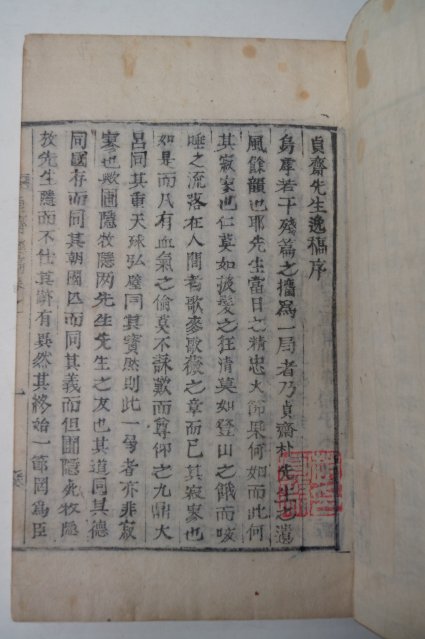 貞齋先生逸稿序
烏虖若干殘篇之攟爲一局者乃貞齋朴先生之遺
風餘韻也耶先生當日之精忠大節果何如而此何
其寂寥也仁莫如披髮之狂清莫如登山之餓而咳
唾之流落在人間者歌麥歌薇之章而已其寂寥也
如是而凡有血氣之倫莫不詠歎而尊仰之九鼎大
呂同其重天球弘璧同其寶然則此一号者亦非寂
寥也歟圃隱牧隱兩先生先生之友也其道同其德
同國存而同其朝國亡而同其義而但圃隱死牧隱
放先生隱而不仕其跡有異然其終始一節罔爲臣